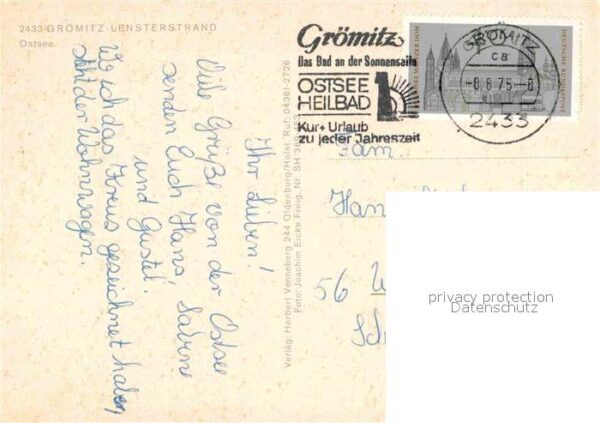 2433 GRÖMITZ-LENSTERSTRAND
Ostsee
Ihr Lieben!
Viele Grüße von der Ostsee
senden Euch Hans, Sabine
und Gustel.
Wo ich das Kreus gezeichnet habe,
steht der Wohnwagen.
Verlag: Herbert Venneberg 244 Oldenburg/Holst. Ruf: 04361-2726
Foto: Joachim Eicke Freig. Nr. SH
Grömitz
Das Bad an der Sonnenseite
OSTSEE
HEILBAD
Kur + Urlaub
zu jeder Jahreszeit
GRÖMITZ
ca
-8.8.75-8
2433
DEUTSCHE BUNDESPOST
Fam.
56
privacy protection
Datenschutz